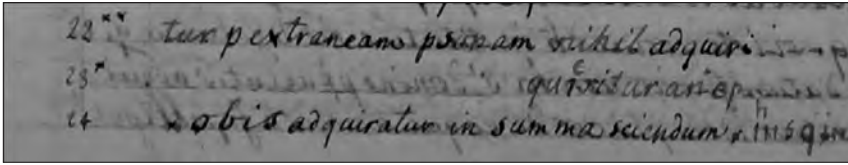 22 ** tur p extraneam psonam nihil adquiri
23 * quęritur an ep
24 x obis adquiratur in summa sciendum x